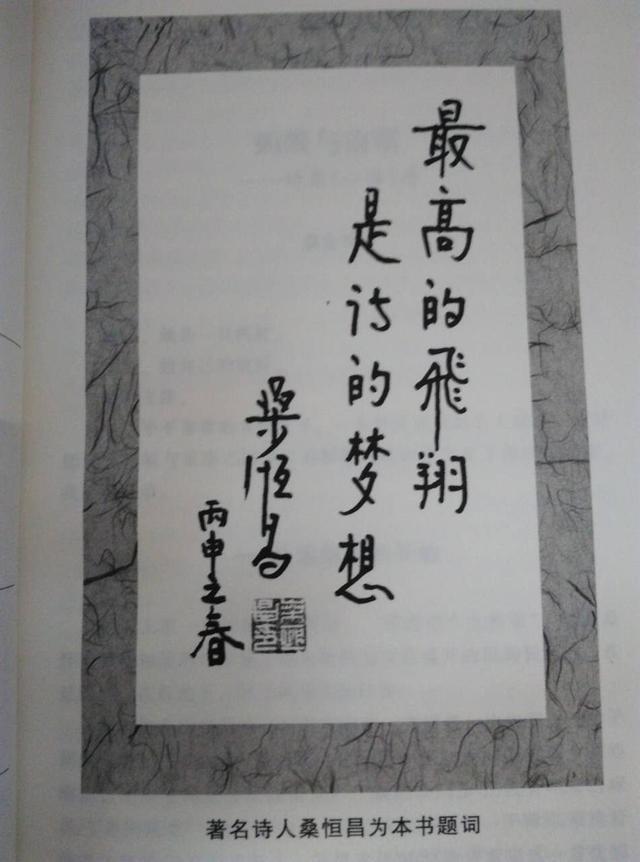 最高的飛翔
是诗的梦想
桑恒昌
丙申之春
著名诗人桑恒昌为本书题词